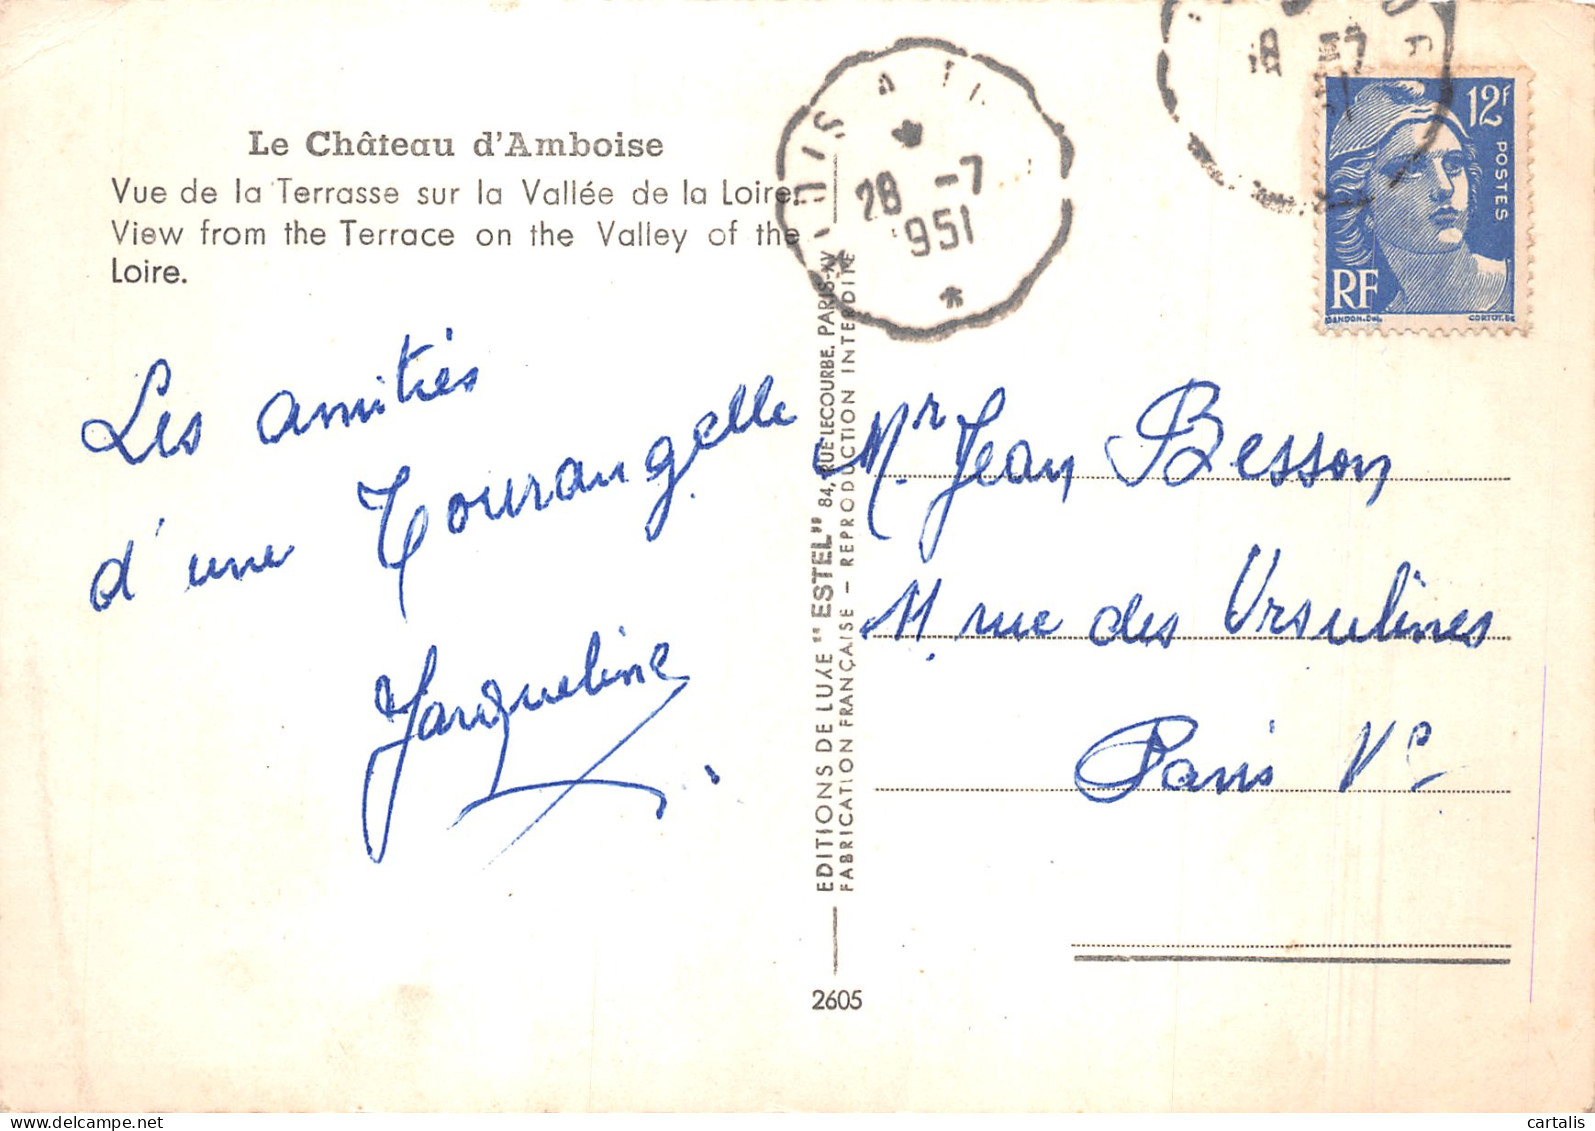 Le Château d'Amboise
Vue de la Terrasse sur la Vallée de la Loire.
View from the Terrace on the Valley of the
Loire.
Les amitiés
d'une Tourangelle
Jacqueline
EDITIONS DE LUXE "ESTEL" 84, RUE LECOURBE. PARIS-XV
FABRICATION FRANÇAISE - REPRODUCTION INTERDITE
2605
28 -7
951
12F
POSTES
RF
GANDON.Del.
CORTOT.Sc
Mr. Jean Besson
11 rue des Ursulines
Paris Ve
cartalis
www.delcampe.net